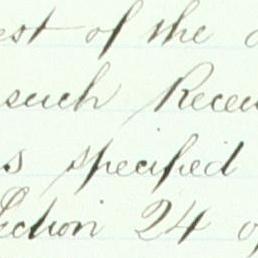 est of the
such Recei
s specified
ection 24 o